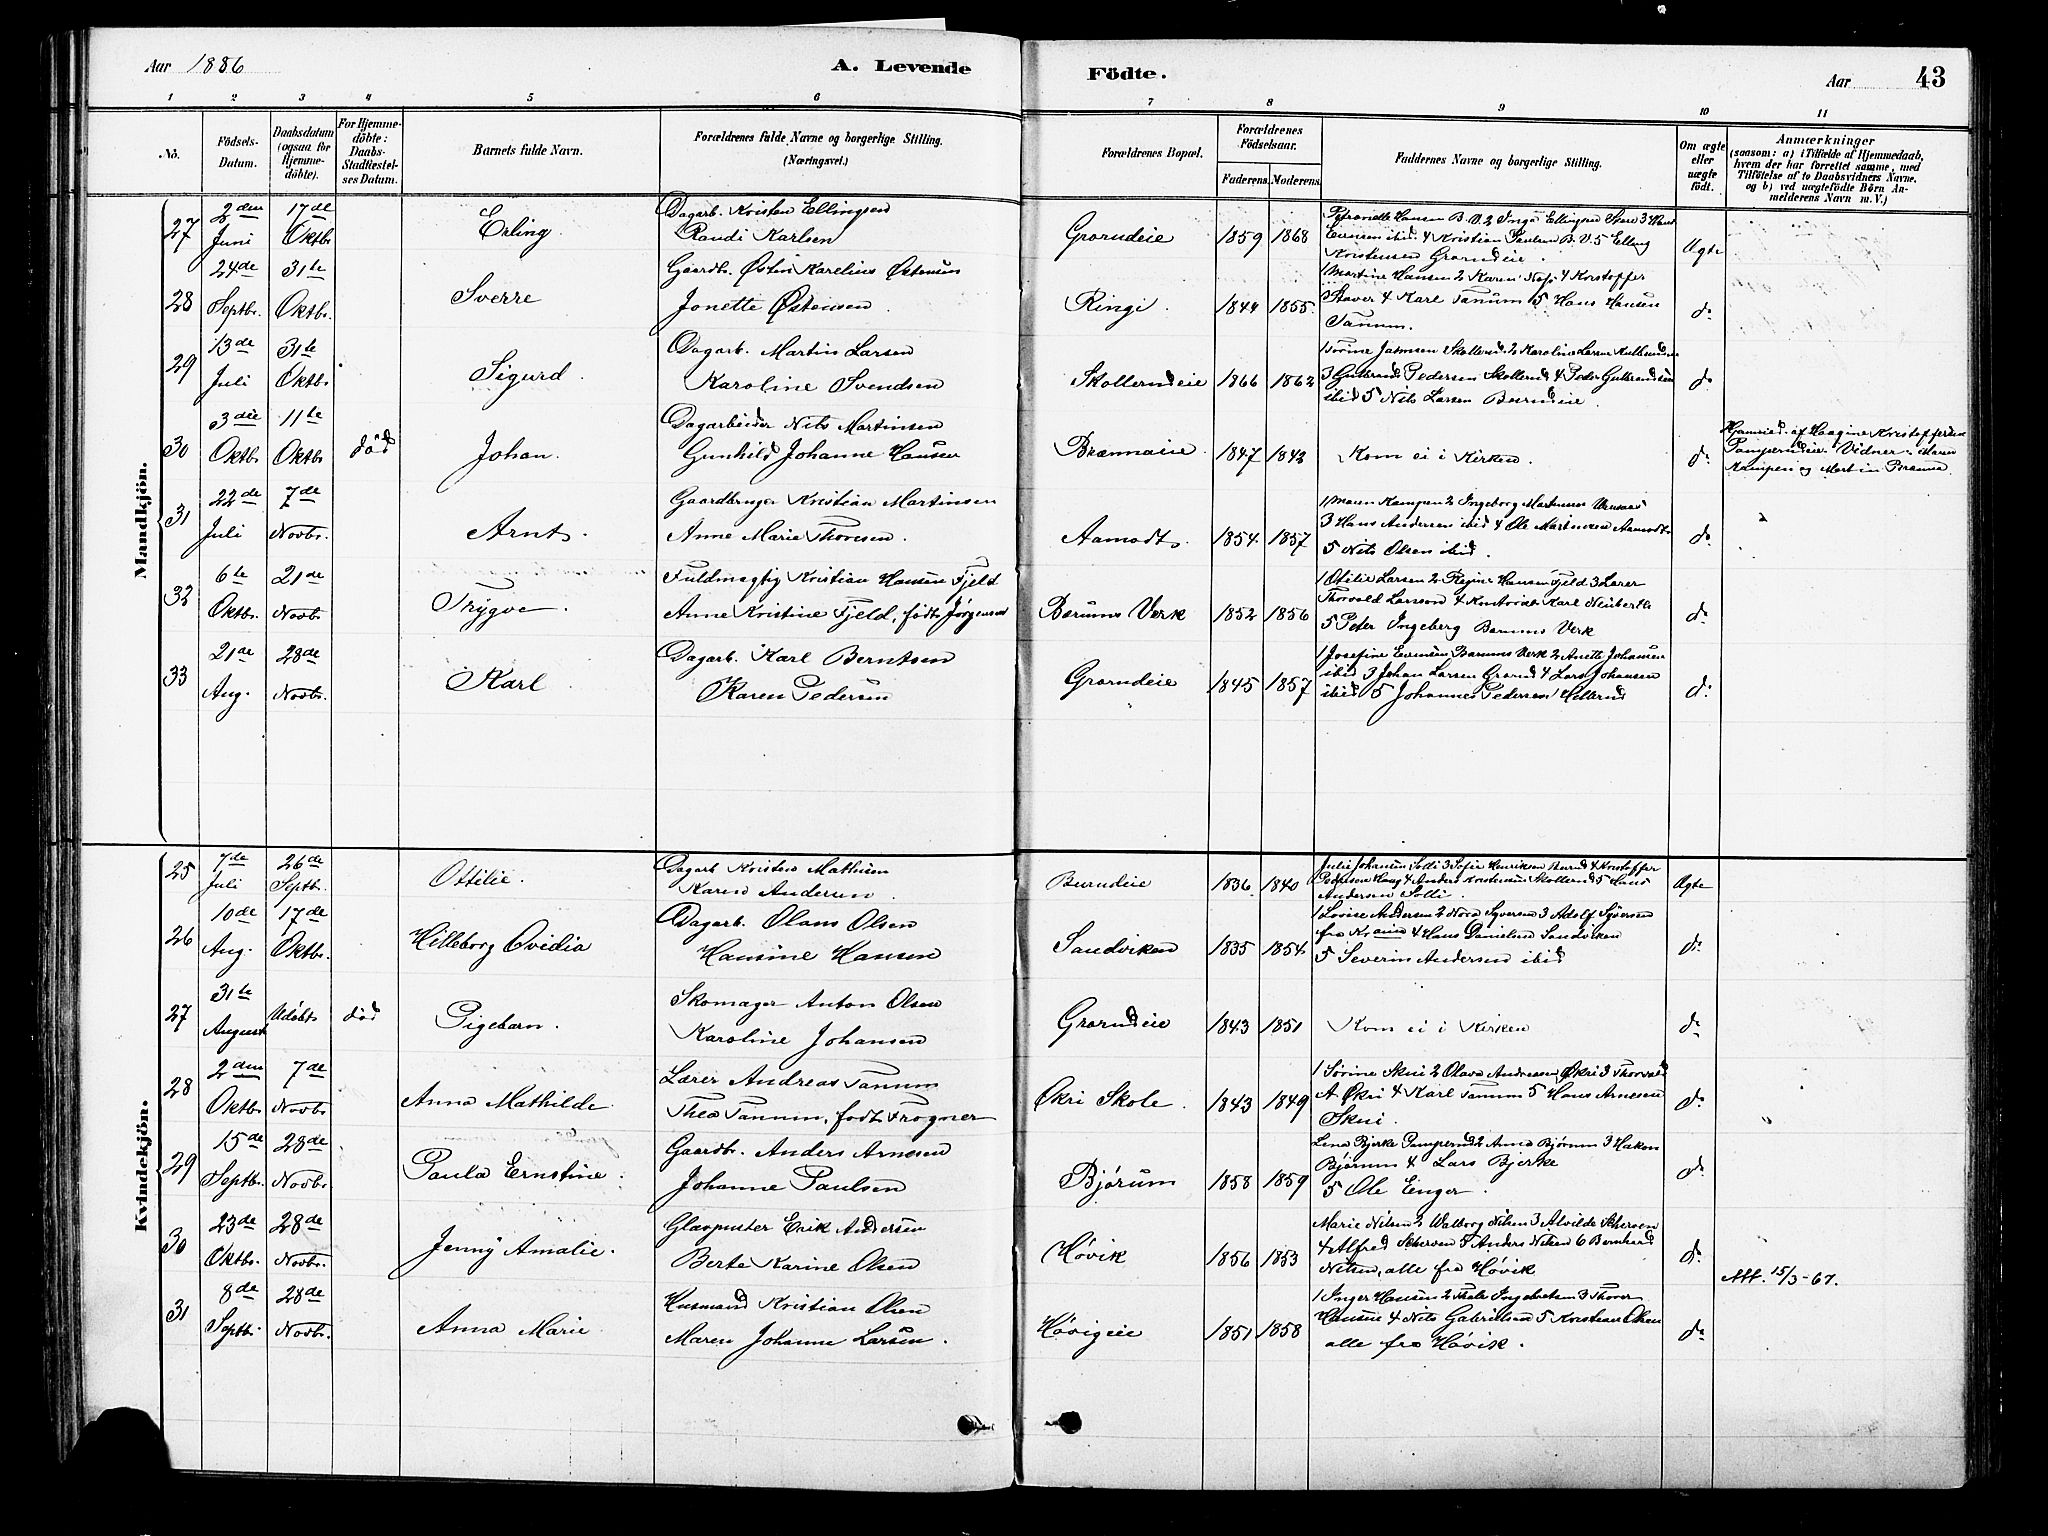 Aar 1886
A. Levende
Födte.
Aar
43
1 2 3 4 5 6 7 8 9 10 11
No.
Födsels-Datum.
Daabsdatum (ogsaa for Hjemme-döbte).
For Hjemme-döbte: Daabs-Stadfæstel-ses Datum.
Barnets fulde Navn.
Forældrenes fulde Navne og borgerlige Stilling.
(Næringsvei.)
Forældrenes Bopæl.
Forældrenes Födselsaar.
Faderens. Moderens.
Faddernes Navne og borgerlige Stilling.
Om ægte eller uægte født.
Anmærkninger
(saasom: a) i Tilfælde af Hjemmedaab,
hvem der har forrettet samme, med
Tilföielse af to Daabsvidners Navne,
og b) ved uægtefödte Börn An-
melderens Navn m. V.)
Mandkjön.
27 2den Juni 17de Oktb. Erling
Dagarb. Kristen Ellingsen
Randi Karlsen
Grorudeie 1859 1868
Petronelle Hansen B. V. 2 Inga Ellingsen 3 Hans
Evensen ibid. 4 Kristian Paulsen B. V. 5 Elling
Kristensen Grorudeie.
Ægte
28 24de Septbr. 31te Oktbr. Sverre
Gaardb. Østen Karelius Østensen
Jonette Østensen
Ringi. 1844 1855.
1 Martine Hansen 2 Karen Næs 4 Kristoffer
Staver 4 Karl Tanum 5 Hans Hansen
Tanum.
do
29 13de Juli 31te Oktbr. Sigurd.
Dagarb. Martin Larsen
Karoline Svendsen
Skollerudeie 1866 1862
3 Gulbrand Pedersen Skollerud 4 Peder Gulbrandsen
ibid 5 Nils Larsen Burudeie.
do
30 3die Oktbr. 11te Oktbr. död Johan.
Dagarbeider Nils Martinsen
Gunhild Johanne Hansen
Brænnaeie. 1847 1843 Kom ei i Kirken. do
Hjemmed. af Haagine Kristoffersen
Pamperudeie. Vidner: Maren
Kampen og Martin Brænna
31 22de Juli 7de Novbr. Arnt.
Gaardbruger Kristian Martinsen
Anne Marie Thoresen.
Aamodt. 1854. 1857
1 Maren Kampen 2 Ingeborg Martinsen
3 Hans Andersen ibid 4 Ole Martinsen Aamodt
5 Nils Olsen ibid.
do
32 6te Oktbr. 21de Novbr. Trygve.
Fuldmægtig Kristian Hansen Fjeld
Anne Kristine Fjeld, født Jørgensen
Bærums Verk 1852 1856
1 Otilie Larsen 2 Regine Hansen Fjeld 3 Lærer
Thorvald Larsson 4 Kontorist Karl Neuberth
5 Peter Ingeberg Bærums Verk
do
33 21de Aug. 28de Novbr. Karl
Dagarb. Karl Berntsen
Karen Pedersen
Grorudeie 1845 1857
1 Josefine Evensen Bærums Verk 2 Anette Johansen
ibid 3 Johan Larsen Grorud 4 Lars Johansen
ibid 5 Johannes Pedersen Hellerud
do
Kvindekjön.
25 7de Juli 26de Septbr. Ottilie.
Dagarb. Kristen Mathisen
Karen Andersen.
Burudeie 1836 1840
Julie Johansen Solli 3 Sofie Henriksen Burud 4 Kristoffer
Pedersen Haug 4 Anders Kristensen Skollerud 5 Hans
Andersen Solli.
Ægte
26 10de Aug. 17de Oktbr. Hilleborg Ovidia
Dagarb. Olaus Olsen
Hansine Hansen
Sandviken 1835 1854.
1 Lovise Andersen 2 Nora Syversen 3 Adolf Syversen
fra Kr.ania 4 Hans Danielsen Sandviken
5 Severin Andersen ibid
do
27 31te August Udøbt død Pigebarn.
Skomager Anton Olsen
Karoline Johansen
Grorudeie 1843 1851 Kom ei i Kirken do
28 2den Oktbr. 7de Novbr. Anna Mathilde
Lærer Andreas Tanum
Thea Tanum, født Frogner
Økri Skole. 1843 1849
1 Sørine Skui 2 Olava Andresen Økri 3 Thorvald
A Økri 4 Karl Tanum 5 Hans Arnesen
Skui.
do
29 15de Septbr. 28de Novbr. Paula Ernstine.
Gaardbr. Anders Arnesen
Johanne Paulsen
Bjørum 1858 1859
Lena Bjerke Pamperud 2 Anna Bjørum 3 Hakon
Bjørum 4 Lars Bjerke
5 Ole Enger.
do
30 23de Oktbr. 28de Novbr. Jenny Amalie.
Glaspuster Erik Andersen
Berte Karine Olsen
Høvik 1856 1853
Marie Nilsen 2 Walborg Nilsen 3 Alvilde Scherven
4 Alfred Scherven 5 Anders Nilsen 6 Bernhard
Nilsen, alle fra Høvik
do
Att. 15/3-67.
31 8de Septbr. 28de Novbr. Anna Marie
Husmand Kristian Olsen
Maren Johanne Larsen.
Høvigeie 1851 1858
1 Inger Hansen 2 Thale Ingebretsen 3 Thorer
Hansen 4 Nils Gabrielsen 5 Kristian Olsen
alle fra Høvik.
do